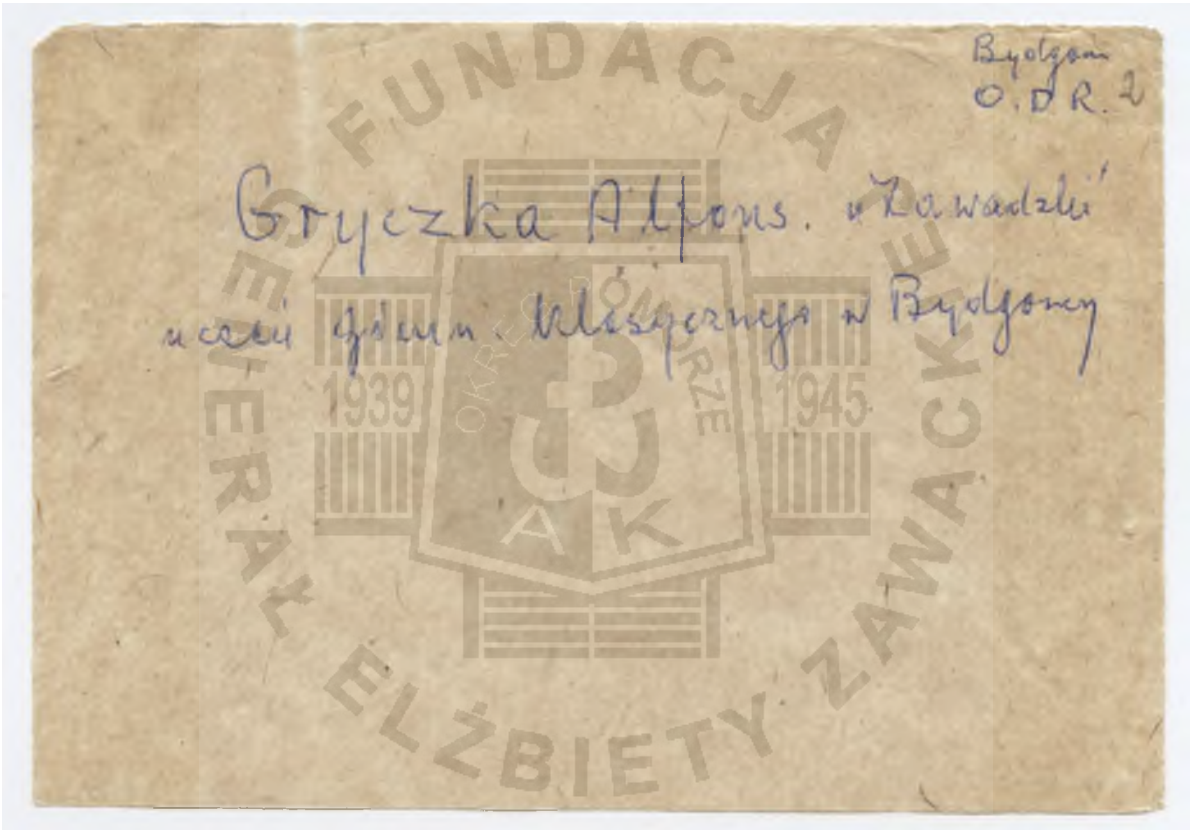 Bydgosz
O.D.R. 2
Gryczka Alfons. „Zawadzki"
uczeń gimn. klasycznego w Bydgoszczy
FUNDACJA
GENERAŁ ELŻBIETY ZAWACKIEJ
OKRĘG POMORZE
1939
1945
A K